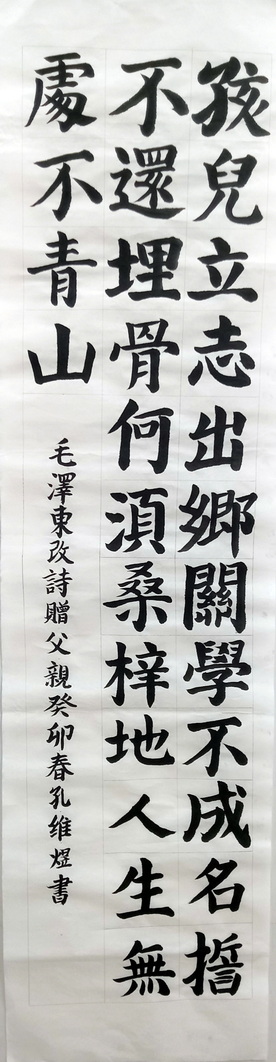 孩兒立志出鄉關學不成名誓
不還埋骨何須桑梓地人生無
處不青山
毛澤東改詩贈父親癸卯春孔维煜書